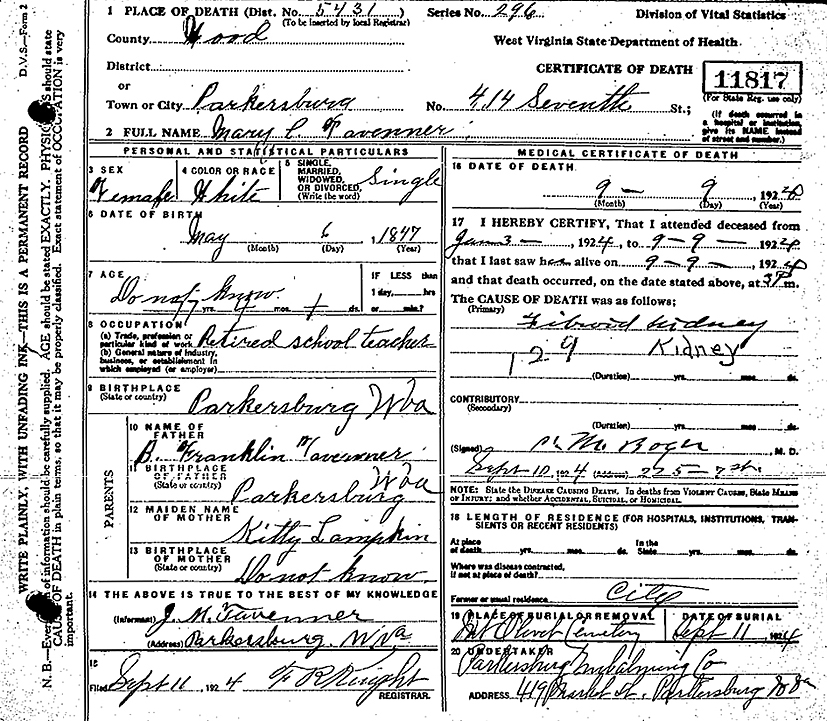 1 PLACE OF DEATH (Dist. No. 5431) Series No. 296 Division of Vital Statistics
(To be inserted by local Registrar)
County Wood West Virginia State Department of Health.
District CERTIFICATE OF DEATH
11817
(For State Reg. use only)
or
Town or City Parkersburg No. 414 Seventh St.;
(If death occurred in a hospital or institution, give its NAME instead of street and number.)
2 FULL NAME Mary C. Tavenner
PERSONAL AND STATISTICAL PARTICULARS
3 SEX
Female
4 COLOR OR RACE
White
5 SINGLE, MARRIED, WIDOWED, OR DIVORCED, (Write the word)
Single
6 DATE OF BIRTH
May 6, 1847
(Month) (Day) (Year)
7 AGE
Do not know.
yrs. mos. ds.
IF LESS than
1 day, hrs
or min.?
8 OCCUPATION
(a) Trade, profession or
particular kind of work
Retired school teacher
(b) General nature of industry,
business, or establishment in
which employed (or employer)
9 BIRTHPLACE
(State or country)
Parkersburg W Va
PARENTS
10 NAME OF FATHER
B. Franklin Tavenner
11 BIRTHPLACE OF FATHER
(State or country)
Parkersburg W Va
12 MAIDEN NAME OF MOTHER
Kitty Lampkin
13 BIRTHPLACE OF MOTHER
(State or country)
Do not know.
14 THE ABOVE IS TRUE TO THE BEST OF MY KNOWLEDGE
(Informant) J. M. Tavenner
(Address) Parkersburg, W Va
15
Filed Sept 11, 1924 F R Knight
REGISTRAR.
MEDICAL CERTIFICATE OF DEATH
16 DATE OF DEATH
9 - 9, 1924
(Month) (Day) (Year)
17 I HEREBY CERTIFY, That I attended deceased from
Jan 3 -, 1924, to 9-9-1924
that I last saw her alive on 9-9-, 1924
and that death occurred, on the date stated above, at 3 P m.
The CAUSE OF DEATH was as follows;
(Primary)
Fibroid kidney
129 Kidney
(Duration) yrs. mos. ds.
CONTRIBUTORY
(Secondary)
(Duration) yrs. mos. ds.
(Signed) M. Boger, M. D.
Sept 10, 1924 (Address) 225-7 st.
NOTE: State the DISEASE CAUSING DEATH. In deaths from VIOLENT CAUSES, State MEANS
OF INJURY; and whether ACCIDENTAL, SUICIDAL, or HOMICIDAL.
18 LENGTH OF RESIDENCE (FOR HOSPITALS, INSTITUTIONS, TRANSIENTS OR RECENT RESIDENTS)
At place
of death yrs. mos. ds.
In the
State yrs. mos. ds.
Where was disease contracted,
if not at place of death?
Former or usual residence City
19 PLACE OF BURIAL OR REMOVAL
Mt Olivet Cemetery
DATE OF BURIAL
Sept 11 1924
20 UNDERTAKER
Parkersburg Embalming Co
ADDRESS 419 Market St. Parkersburg W Va
D.V.S.—Form 2
WRITE PLAINLY, WITH UNFADING INK—THIS IS A PERMANENT RECORD
N. B.—Every item of information should be carefully supplied. AGE should be stated EXACTLY. PHYSICIANS should state
CAUSE OF DEATH in plain terms, so that it may be properly classified. Exact statement of OCCUPATION is very
important.